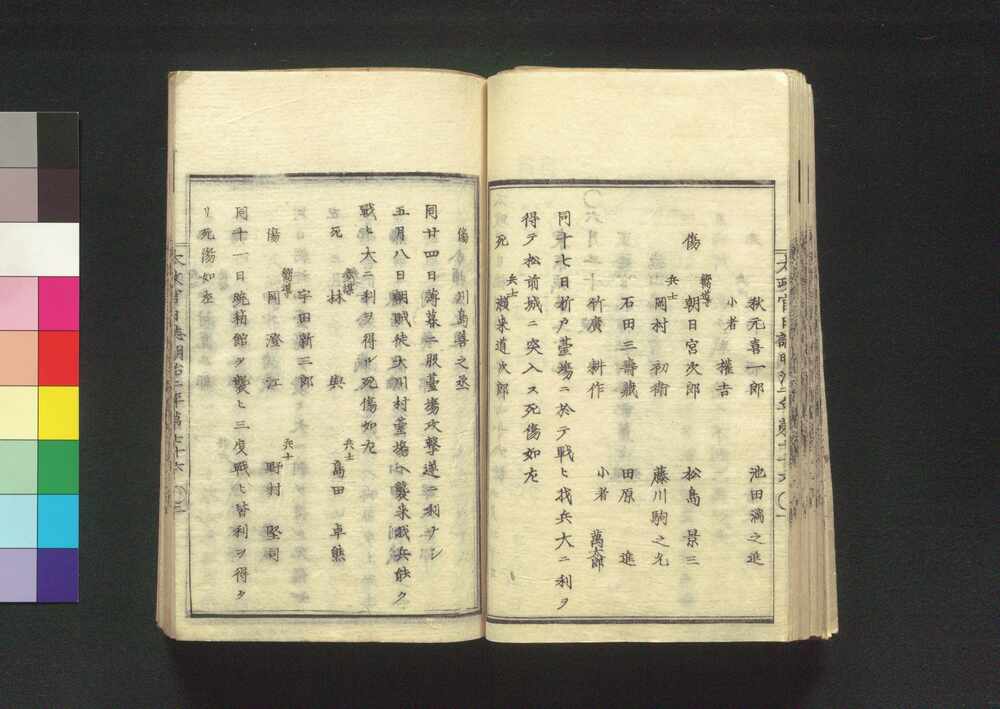 秋元喜一郎　池田満之進
小者　権吉
傷　嚮導　朝日宮次郎　松島景三
兵士　岡村初衛　藤川駒之允
石田三壽藏　田原進
竹廣耕作　小者　萬太郎
同十七日折戸臺場ニ於テ戰ヒ我兵大ニ利ヲ
得テ松前城ニ突入ス死傷如左
死　兵士　瀬来道次郎
傷　川島善之丞
同廿四日薄暮二股臺場攻撃遂ニ利ナシ
五月八日朝賊徒大川村臺場ヘ襲来我兵能ク
戰ヒ大ニ利ヲ得ル死傷如左
死　嚮導　林與　兵士　高田卓熊
宇田新三郎
傷　嚮導　岡澄江　兵士　野村堅司
同十一日暁箱館ヲ襲ヒ三度戰ヒ皆利ヲ得タ
リ死傷如左
太政官日誌明治二年第七十六